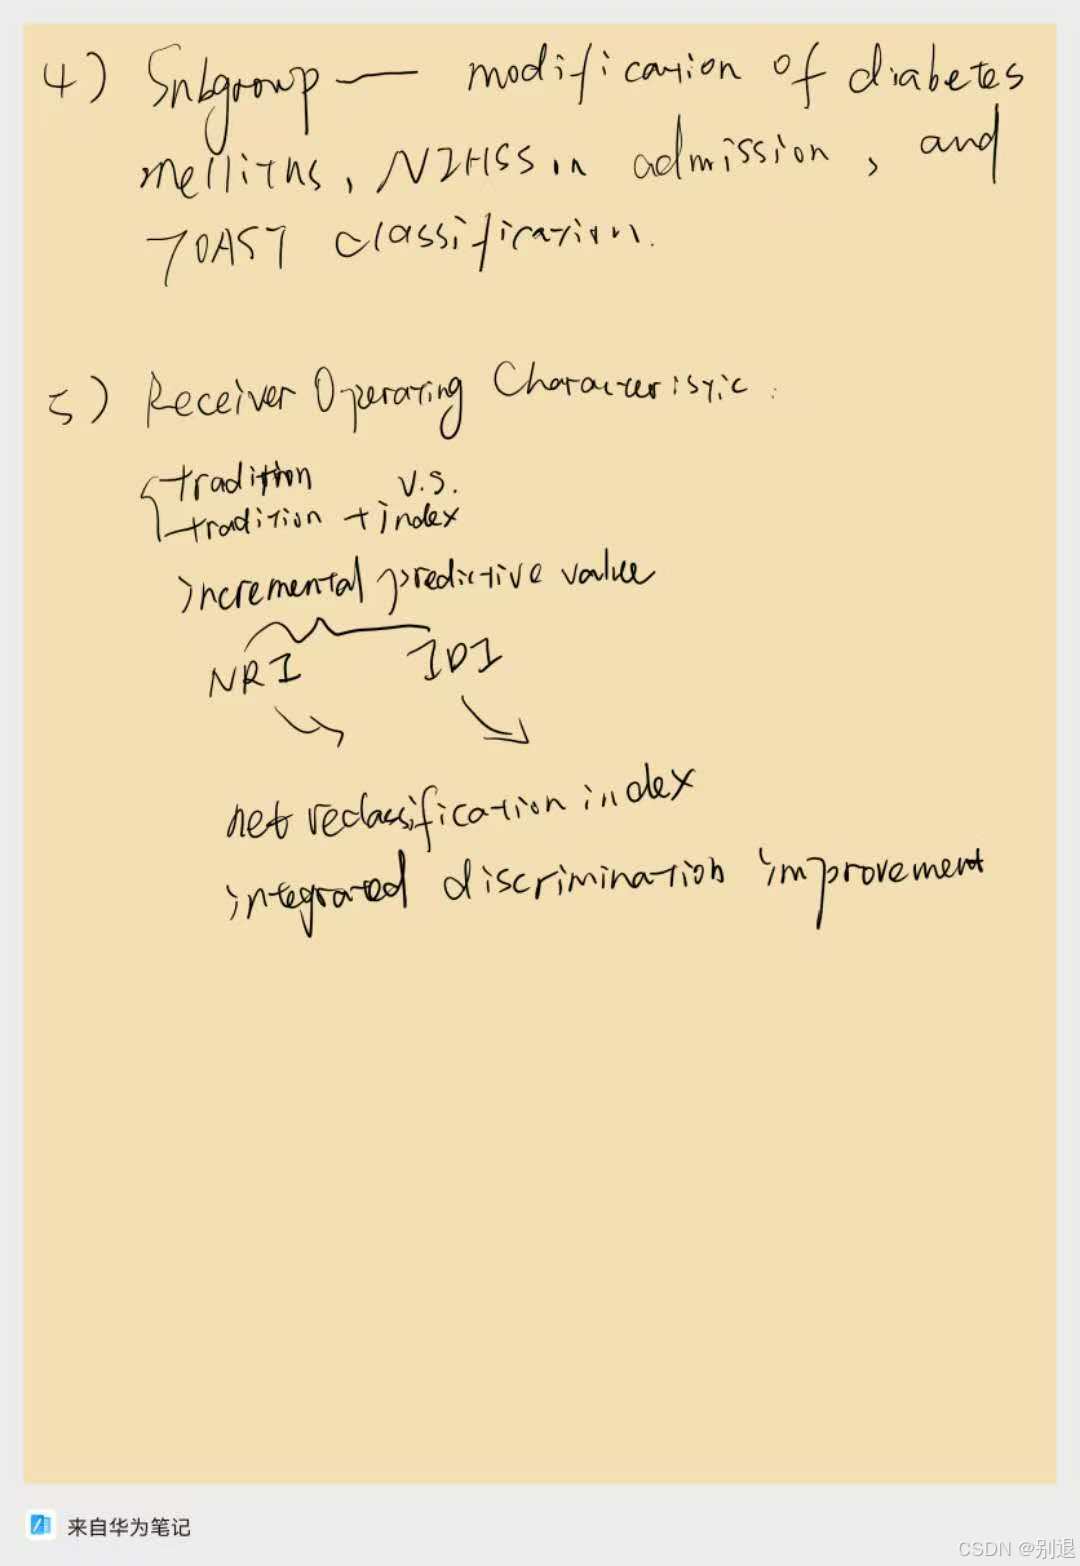 4) Subgroup — modification of diabetes
mellitus, NIHSS in admission, and
TOAST classification.
5) Receiver Operating Characteristic.
tradition v.s.
tradition + index
incremental predictive value
NRI IDI
net reclassification index
integrated discrimination improvement
来自华为笔记
CSDN @别退